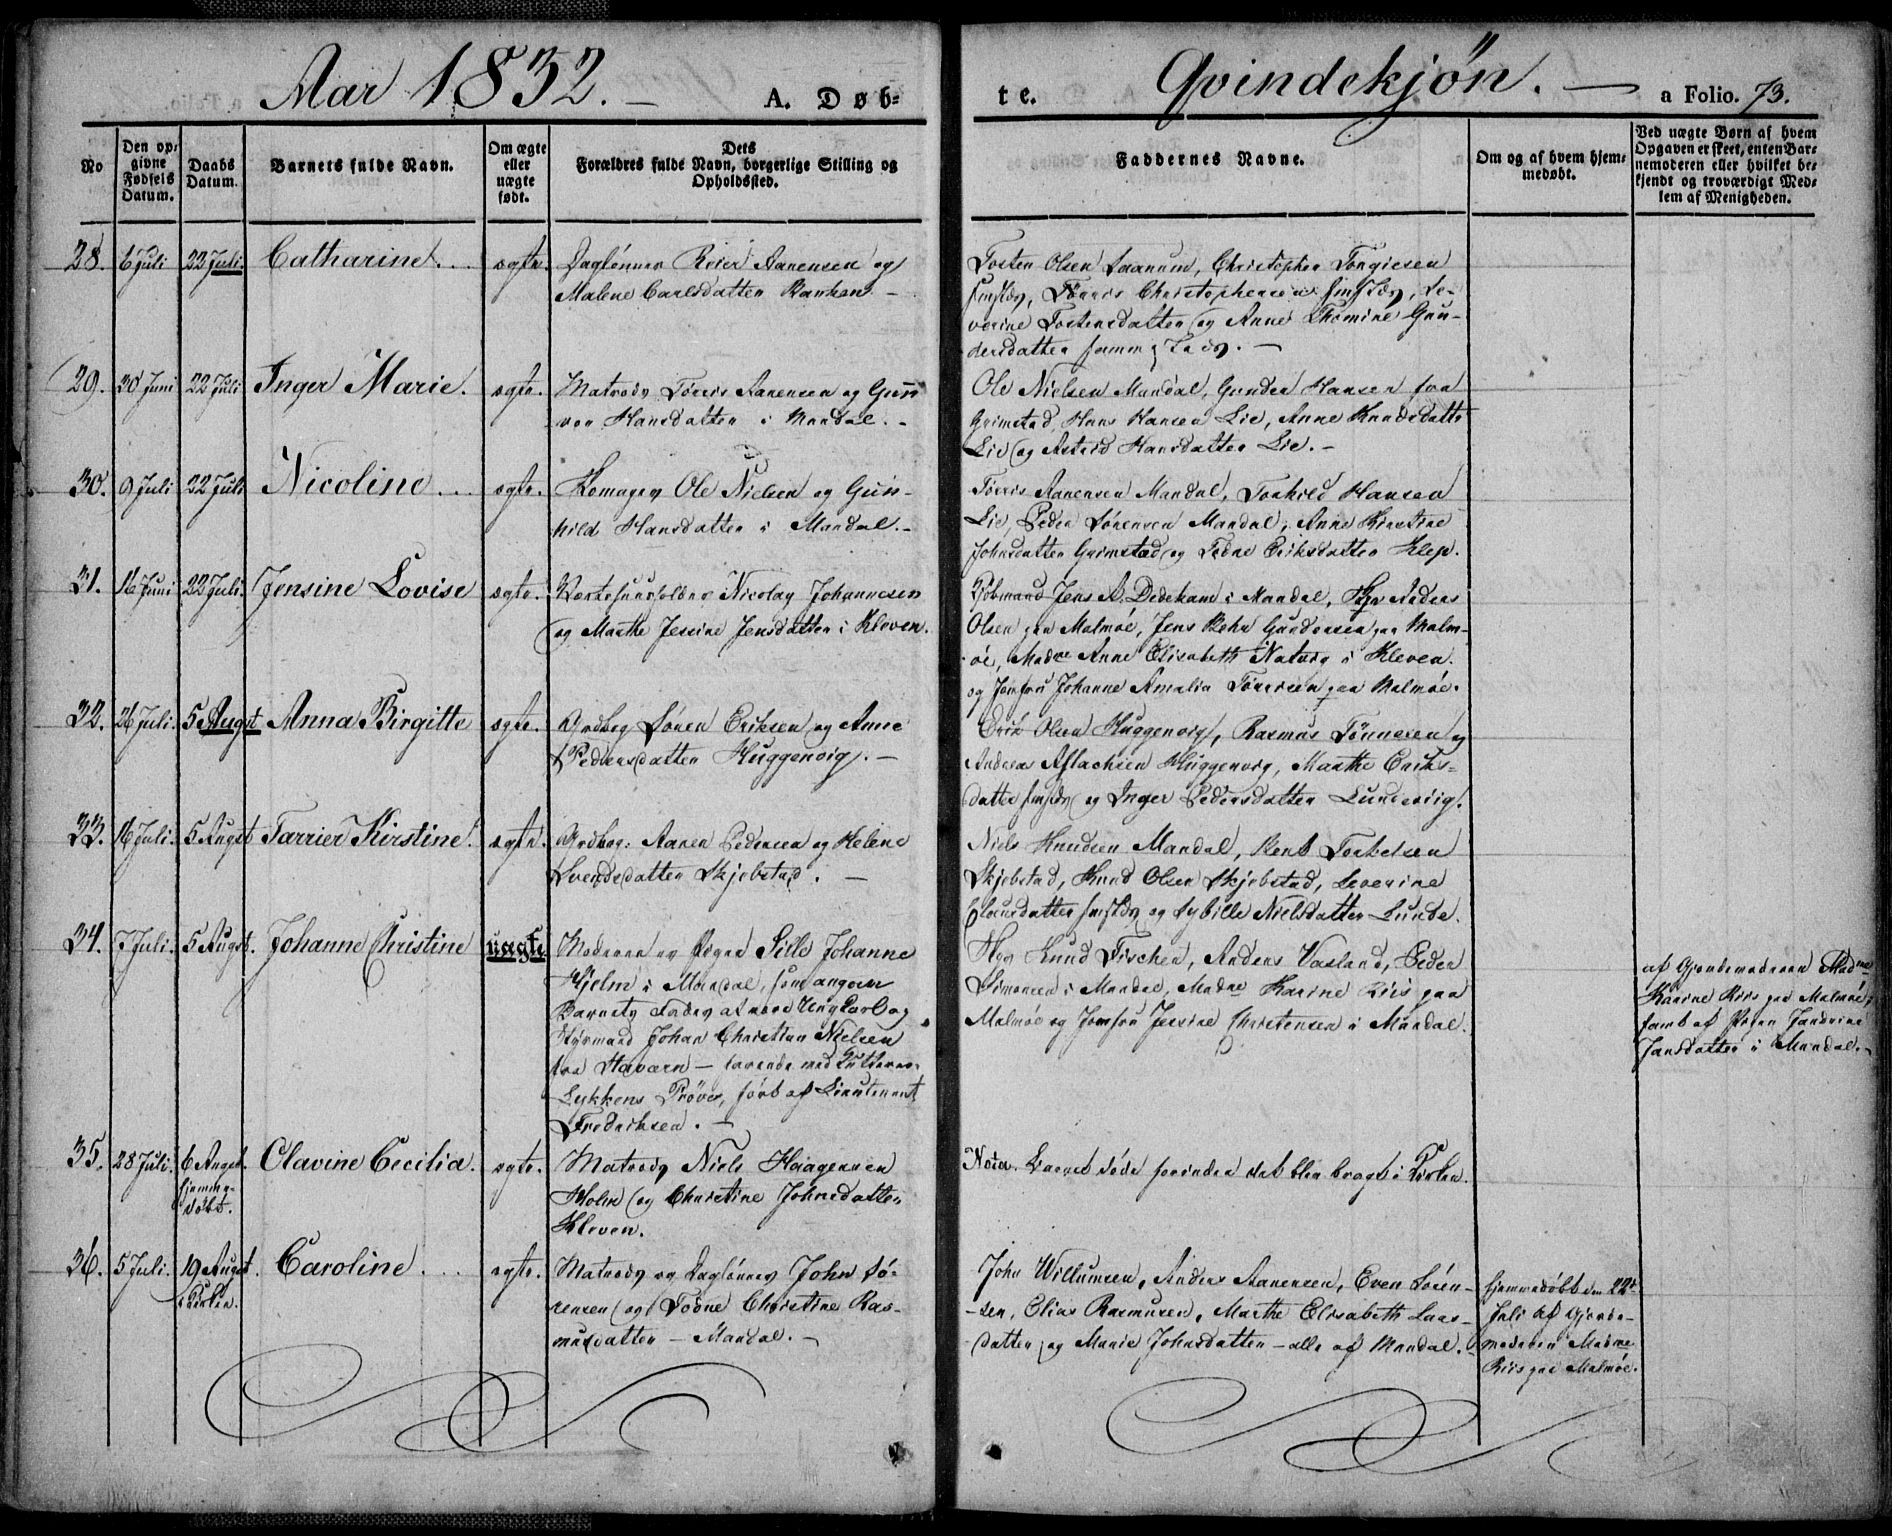 Aar 1832. — A. Døb=
te. Qvindekjøn. — a Folio. 73.
No
Den op=
givne
Fødsels
Datum.
Daabs
Datum.
Barnets fulde Navn.
Om ægte
eller
uægte
født.
Dets
Forældres fulde Navn, borgerlige Stilling og
Opholdssted.
Faddernes Navne.
Om og af hvem hjem=
medøbt.
Ved uægte Børn af hvem
Opgaven er skeet, enten Bar=
nemoderen eller hvilket be=
kjendt og troværdigt Med=
lem af Menigheden.
28. 6 Juli 22 Juli. Catharine. ægte. Daglønner Reier Aanensen og
Malene Carlsdatter Banken. —
Tosten Olsen Saanum, Christopher Tongiesen
Christophersen
verine Tostensdatter og Anne Thomine Gun-
dersdatter
29. 20 Juni 22 Juli Inger Marie. ægte. Matrods Tørris Aanensen og Gun
vor Hansdatter i Mandal. -
Ole Nielsen Mandal, Gunder Hansen fra
Grimstad, Hans Hansen Lie, Anne Knudsdatte
Lie og Astrid Hansdatter Lie. -
30. 9 Juli 22 Juli Nicoline ... ægte. Skomager Ole Nielsen og Gun-
hild Hansdatter i Mandal. -
Tørris Aanensen Mandal, Torkild Hansen
Lie, Peder Sørensen Mandal, Anne Kirstine
Johnsdatter Grimstad og Tedne Eriksdatter Klep.
31. 16 Juni 22 Juli. Jensine Lovise ægte. Værtshuusholder Nicolay Johannesen
og Marthe Jessine Jensdatter i Kleven.
Kjøbmand Jens A. Dedekam i Mandal, Hgr Anders
Olsen paa Malmøe, Jens Behn Gundersen paa Malm-
øe, Madme Anne Elisabeth Natvig i Kleven.
og Jomfru Johanne Amalia Tørresen paa Malmøe.
32. 26 Juli. 5 Augst Anna Birgitte ægte. Grdbrg Søren Eriksen og Anne
Pedersdatter Huggenvig. —
Erik Olsen Huggenvig, Rasmus Tønnesen og
Andreas Aslachsen Huggenvig, Marthe Eriks-
datter og Inger Pedersdatter Lundeviig.
33. 16 Juli. 5 Augst Tarrier Kirstine. ægte. Grdbrg: Aanen Pedersen og Helene
Svendsdatter Skjebstad. —
Niels Knudsen Mandal, Bent Torkelsen
Skjebstad, Knud Olsen Skjebstad, Severine
Clausdatter og Sybille Nielsdatter Lunde.
34. 7 Juli. 5 Augst. Johanne Christine uægte Moderen er Pigen Sille Johanne
Hjelm i Mandal, som angav
Barnets Fader at være Ungkarl og
Styrmand Johan Christian Nielsen
fra Staværn — farende med
Lykkens Prøve, ført af Lieutenant
Fredriksen. —
Hgr Knud Fischer, Anders Vasland, Peder
Simonsen i Mandal, Madme Karine Riis paa
Malmøe og Jomfru Jessine Christensen i Mandal.
af Gjordemoderen Madme
Karine Riis paa Malmøe,
samt af Pigen Tandrine
Jansdatter i Mandal. -
35. 28 Juli. 6 Augst.
hjemme-
døbt.
Olavine Cecilia. ægte. Matrods Niels Haagensen
Holm og Christine Johnsdatter
Kleven.
Nota. Barnet døde forinden det blev bragt i Kirken.
36. 5 Juli. 19 Augst.
i Kirken.
Caroline .... ægte. Matrods og Dagløner John Sø-
rensen og Todne Christine Ras-
musdatter — Mandal. —
John Willumsen, Anders Aanensen, Even Søren-
-sen, Elias Rasmusen, Marthe Elisabeth Laas-
datter og Marie Johnsdatter — alle af Mandal.
hjemmedøbt den 22de
Juli af Gjorde-
moderen Madme
Riis paa Malmøe.